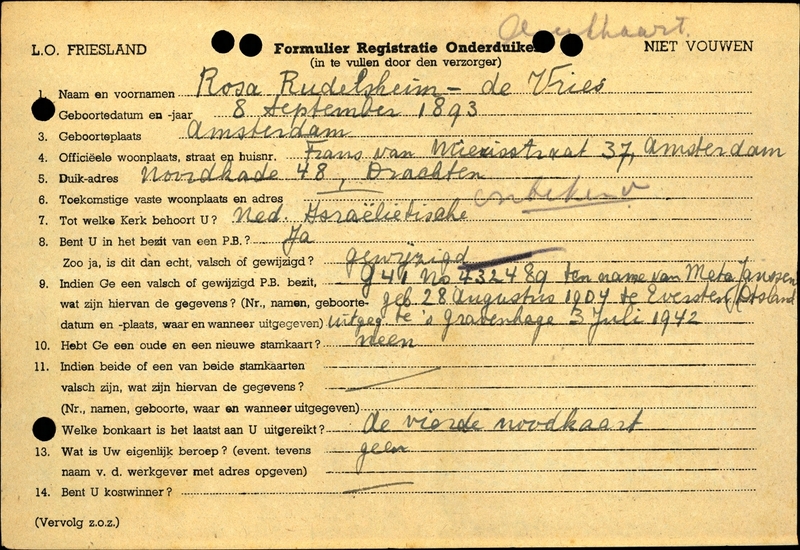 L.O. FRIESLAND
Formulier Registratie Onderduiker
NIET VOUWEN
(in te vullen door den verzorger)
1. Naam en voornamen Rosa Rudelsheim - de Vries
Geboortedatum en -jaar 8 September 1893
3. Geboorteplaats Amsterdam
4. Officiëele woonplaats, straat en huisnr. Frans van Mierisstraat 37, Amsterdam
5. Duik-adres Noordkade 48, Drachten
6. Toekomstige vaste woonplaats en adres onbekend
7. Tot welke Kerk behoort U? Ned. Israëlietische
8. Bent U in het bezit van een P.B.? Ja
Zoo ja, is dit dan echt, valsch of gewijzigd? gewijzigd
9. Indien Ge een valsch of gewijzigd P.B. bezit, G41 No 432489 ten name van Meta Janssen
wat zijn hiervan de gegevens? (Nr., namen, geboorte- geb 28 Augustus 1904 te Eversten
datum en -plaats, waar en wanneer uitgegeven) uitgeg. te 's Gravenhage 3 Juli 1942
10. Hebt Ge een oude en een nieuwe stamkaart? neen
11. Indien beide of een van beide stamkaarten
valsch zijn, wat zijn hiervan de gegevens?
(Nr., namen, geboorte, waar en wanneer uitgegeven)
Welke bonkaart is het laatst aan U uitgereikt? de vierde noodkaart
13. Wat is Uw eigenlijk beroep? (event. tevens geen
naam v. d. werkgever met adres opgeven)
14. Bent U kostwinner?
(Vervolg z.o.z.)